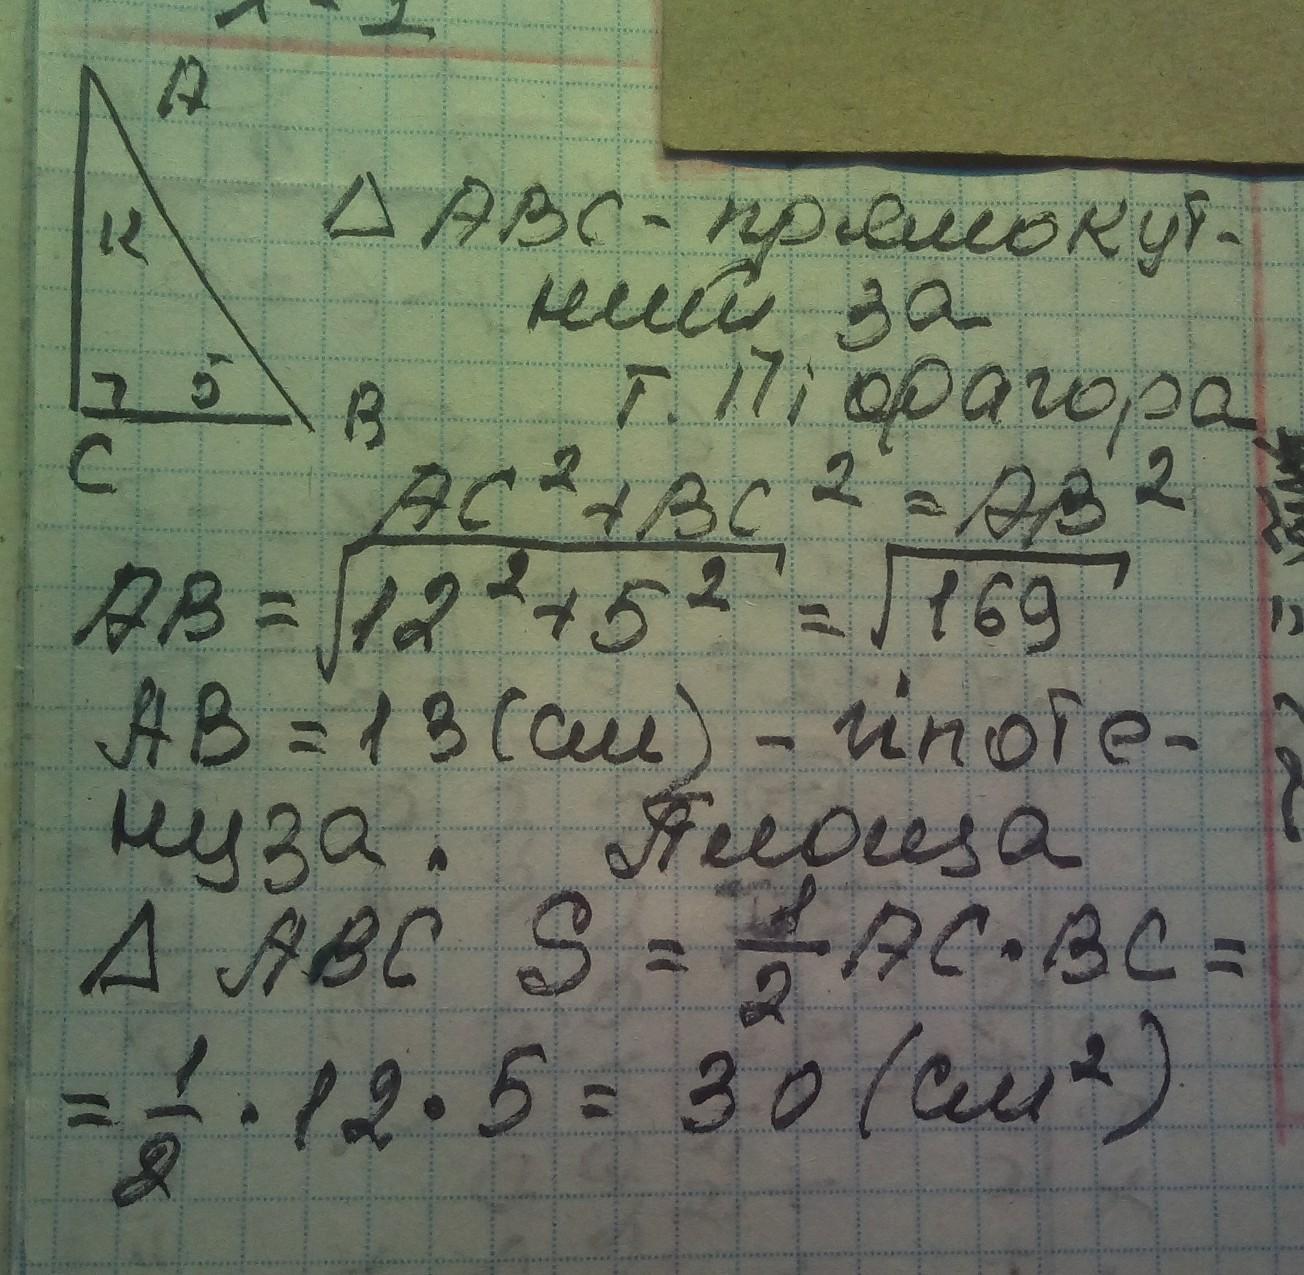 A
12
5
B
C
Δ ABC - прямокут-
ний за
т. Піфагора
AC² + BC² = AB²
AB = √12² + 5² = √169
AB = 13 (см) - гіпоте-
нуза. Площа
Δ ABC S = 1/2 AC · BC =
= 1/2 · 12 · 5 = 30 (см²)